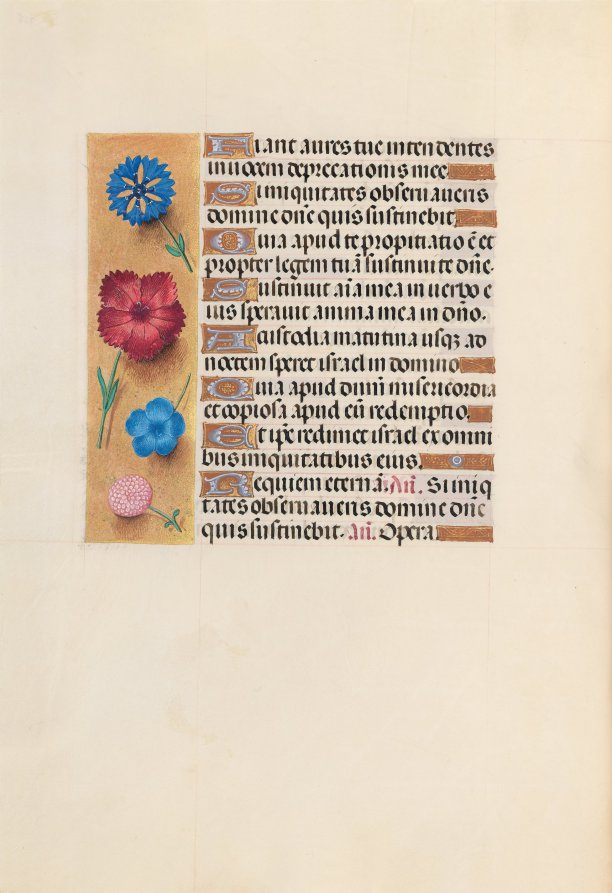 Fiant aures tue intendentes
in uocem deprecationis mee
Si iniquitates obseruaueris
domine dñe quis sustinebit
Quia apud te propitiatio ē et
propter legem tuā sustinui te dñe.
Sustinuit aīa mea in uerbo e
ius sperauit anima mea in dño.
A custodia matutina usqz ad
noctem speret israel in domino
Quia apud dnm̄ misericordia
et copiosa apud eū redemptio.
Et ipē redimet israel ex omni
bus iniquitatibus eius.
Requiem eternā. An̄. Si iniq
tates obseruaueris domine dñe
quis sustinebit. An̄. Opera